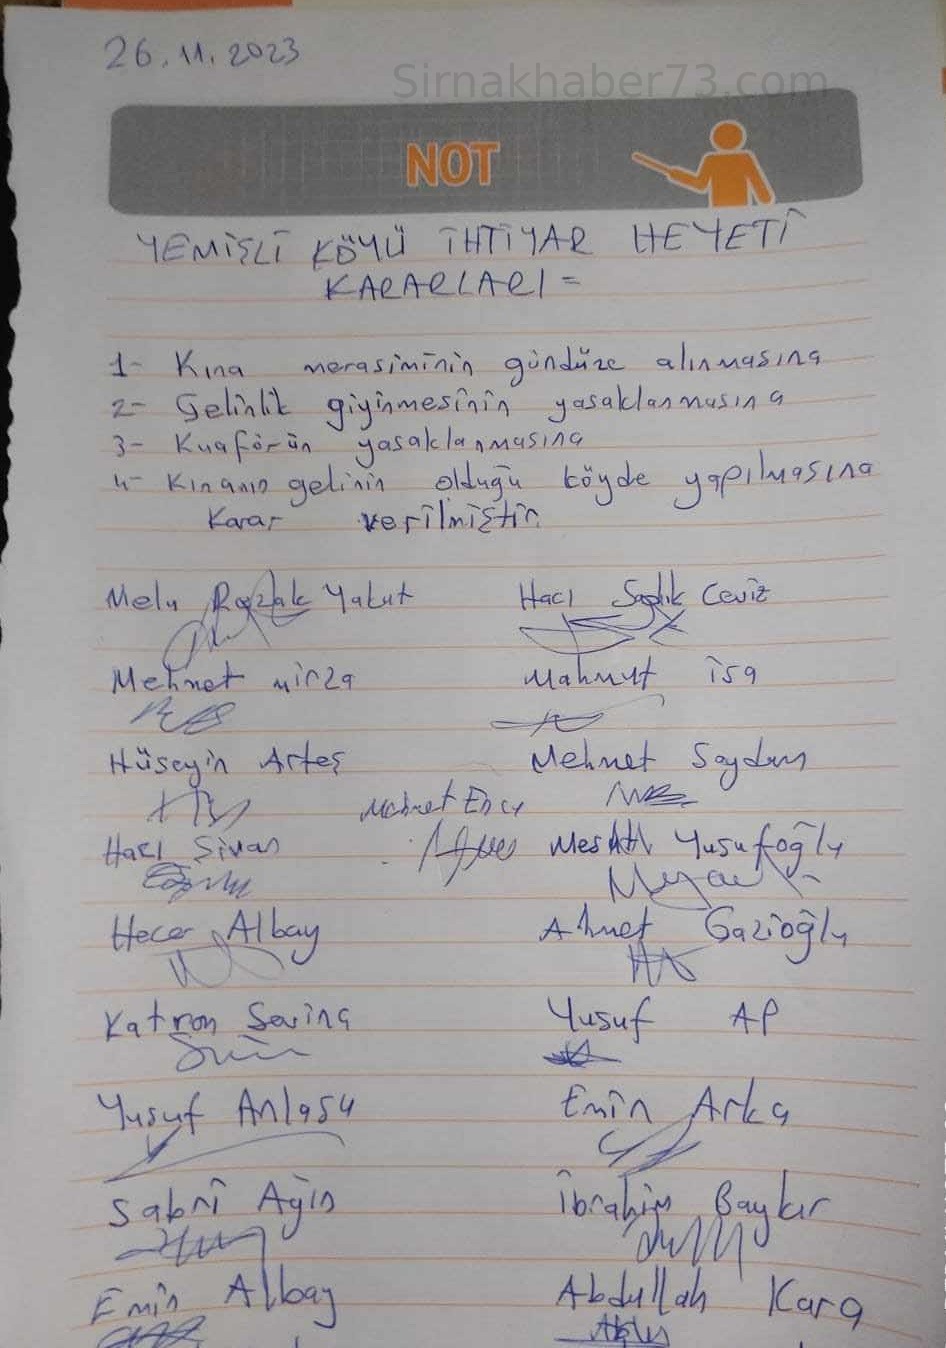 26.11.2023
Sirnakhaber73.com
NOT
YEMİŞLİ KÖYÜ İHTİYAR HEYETİ
KARARLARI =
1- Kına merasiminin gündüze alınmasına
2- Gelinlik giyinmesinin yasaklanmasına
3- Kuaförün yasaklanmasına
4- Kınanın gelinin olduğu köyde yapılmasına
Karar verilmiştir
Razzak Yakut Hacı Sadık Ceviz
Mehmet mirza Mahmut İsa
Hüseyin Arteş Mehmet Saydam
Hacı Sivan Yusufoğlu
Albay Ahmet Gazioğlu
Yusuf AP
Yusuf Anlasu Emin Arka
Sabri Ağin İbrahim Baykır
Emin Albay Abdullah Kara